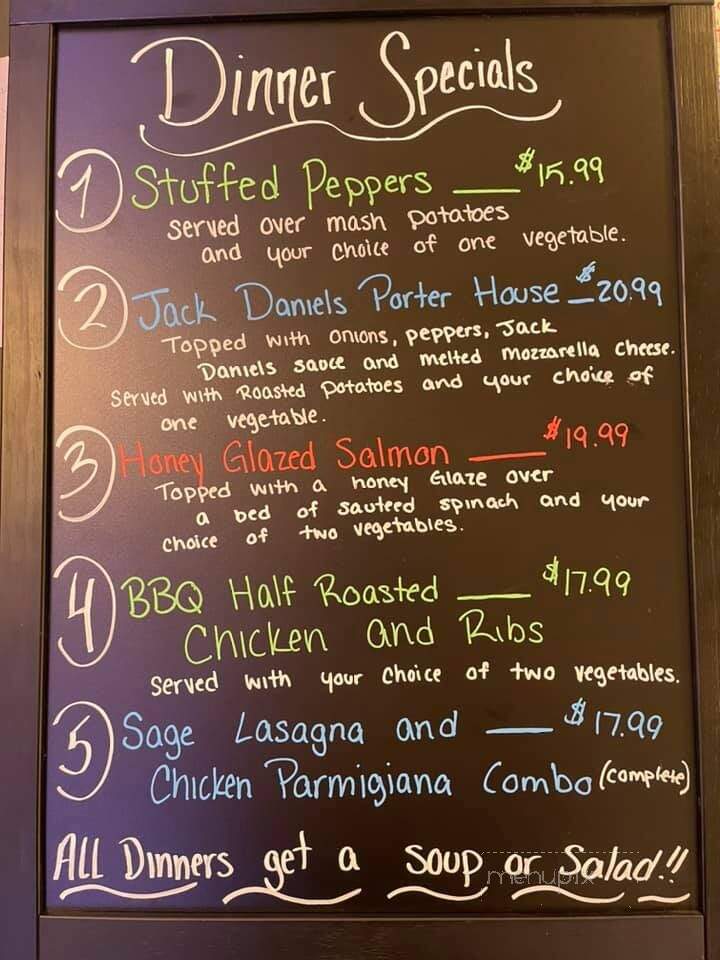 Dinner Specials
1 Stuffed Peppers __ $15.99
Served over mash potatoes
and your choice of one vegetable.
2 Jack Daniels Porter House _ $20.99
Topped with onions, peppers, Jack
Daniels sauce and melted mozzarella cheese.
Served with Roasted potatoes and your choice of
one vegetable.
3 Honey Glazed Salmon __ $19.99
Topped with a honey Glaze over
a bed of sauteed spinach and your
choice of two vegetables.
4 BBQ Half Roasted __ $17.99
Chicken and Ribs
Served with your choice of two vegetables.
5 Sage Lasagna and __ $17.99
Chicken Parmigiana Combo (complete)
ALL Dinners get a soup or Salad!!
menupix